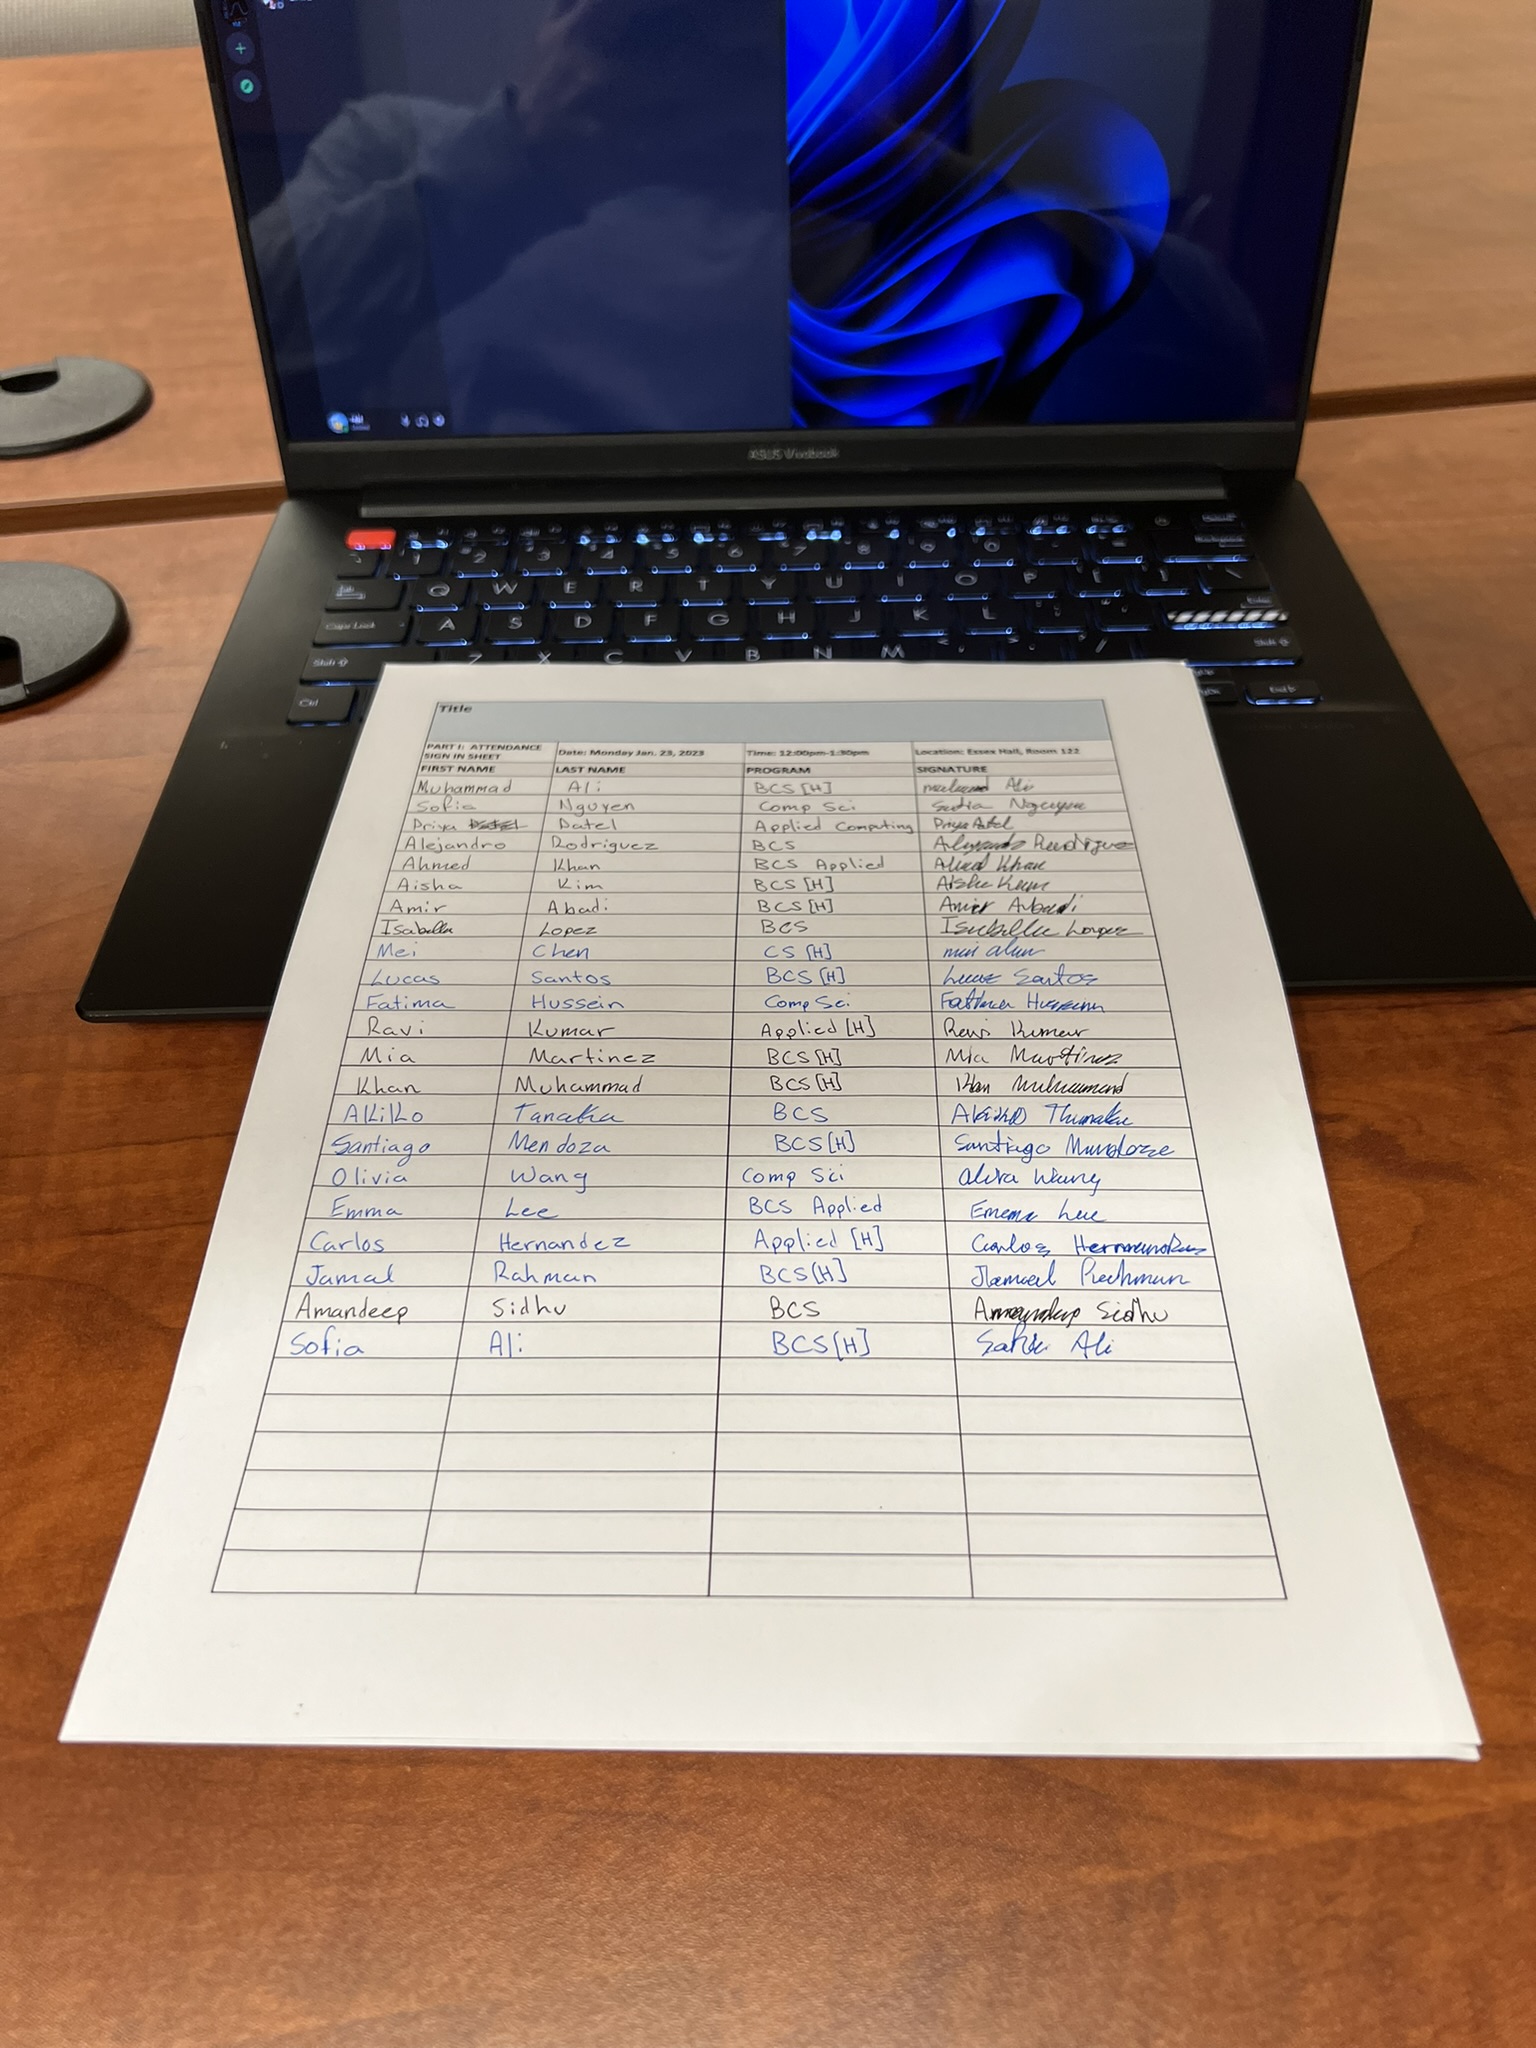 ASUS Vivobook
1 2 3 4 5 6 7 8 9 0
Q W E R T Y U I O P
Caps Lock A S D F G H J K L
Shift Z X C V B N M Shift
Ctrl
Title
PART I: ATTENDANCE SIGN IN SHEET Date: Monday Jan. 23, 2023 Time: 12:00pm-1:30pm Location: Essex Hall, Room 122
FIRST NAME LAST NAME PROGRAM SIGNATURE
Muhammad Ali BCS [H] Ali
Sofia Nguyen Comp Sci Sofia Nguyen
Priya Patel Applied Computing Priya Patel
Alejandro Rodriguez BCS Alejandro Rodriguez
Ahmed Khan BCS Applied Ahmed Khan
Aisha Kim BCS [H] Aisha Kim
Amir Abadi BCS [H] Amir Abadi
Isabella Lopez BCS Isabella Lopez
Mei Chen CS [H] mei chen
Lucas Santos BCS [H] Lucas Santos
Fatima Hussein Comp Sci Fatima Hussein
Ravi Kumar Applied [H] Ravi Kumar
Mia Martinez BCS [H] Mia Martinez
Khan Muhammad BCS [H] Khan Muhammad
Akiko Tanaka BCS Akiko Tanaka
Santiago Mendoza BCS [H] Santiago Mendoza
Olivia Wang Comp Sci Olivia Wang
Emma Lee BCS Applied Emma Lee
Carlos Hernandez Applied [H] Carlos Hernandez
Jamal Rahman BCS [H] Jamal Rahman
Amandeep Sidhu BCS Amandeep Sidhu
Sofia Ali BCS [H] Sofia Ali